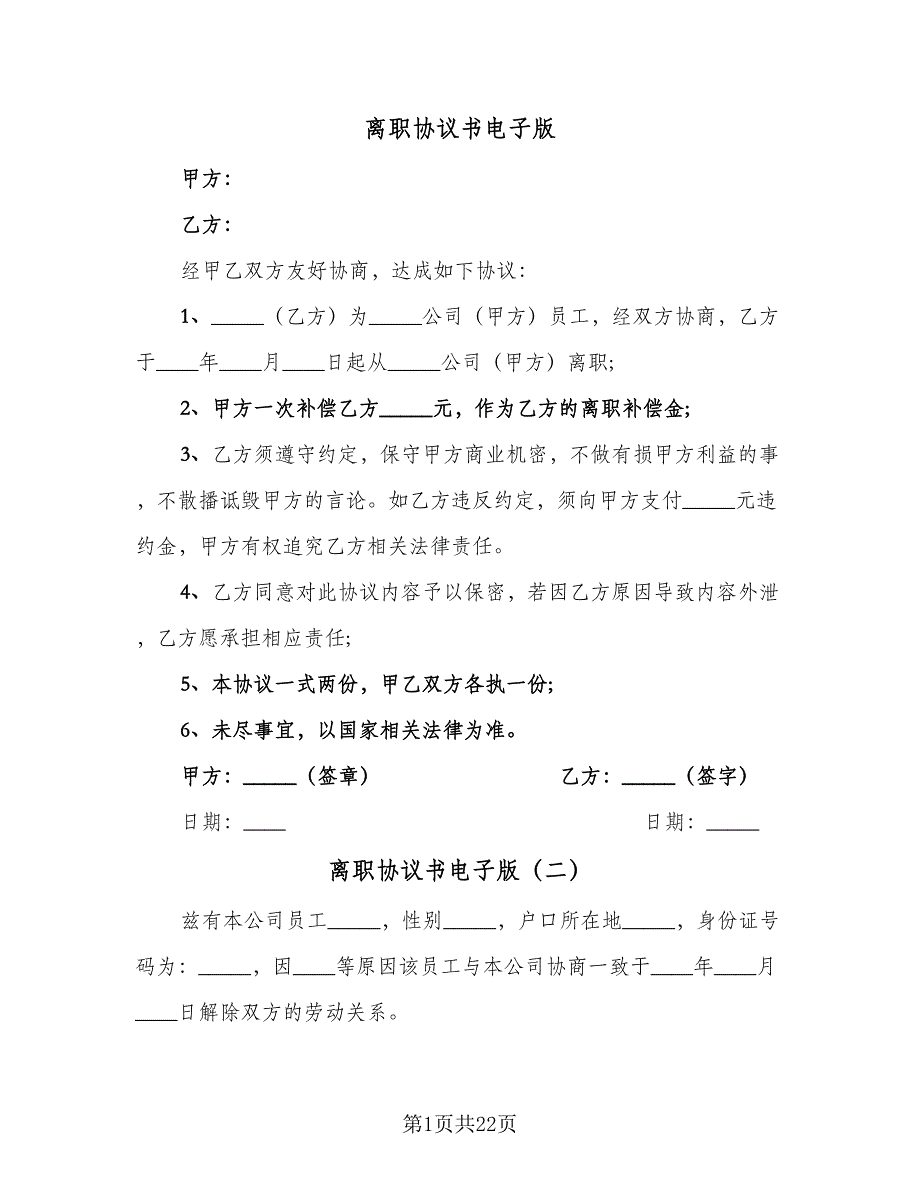 离职协议书电子版
甲方：
乙方：
经甲乙双方友好协商，达成如下协议：
1、_____（乙方）为_____公司（甲方）员工，经双方协商，乙方
于____年____月____日起从_____公司（甲方）离职;
2、甲方一次补偿乙方_____元，作为乙方的离职补偿金;
3、乙方须遵守约定，保守甲方商业机密，不做有损甲方利益的事
，不散播诋毁甲方的言论。如乙方违反约定，须向甲方支付_____元违
约金，甲方有权追究乙方相关法律责任。
4、乙方同意对此协议内容予以保密，若因乙方原因导致内容外泄
，乙方愿承担相应责任;
5、本协议一式两份，甲乙双方各执一份;
6、未尽事宜，以国家相关法律为准。
甲方：_____（签章） 乙方：_____（签字）
日期：____ 日期：_____
离职协议书电子版（二）
兹有本公司员工_____，性别_____，户口所在地_____，身份证号
码为：_____，因____等原因该员工与本公司协商一致于____年____月
____日解除双方的劳动关系。
第1页共22页